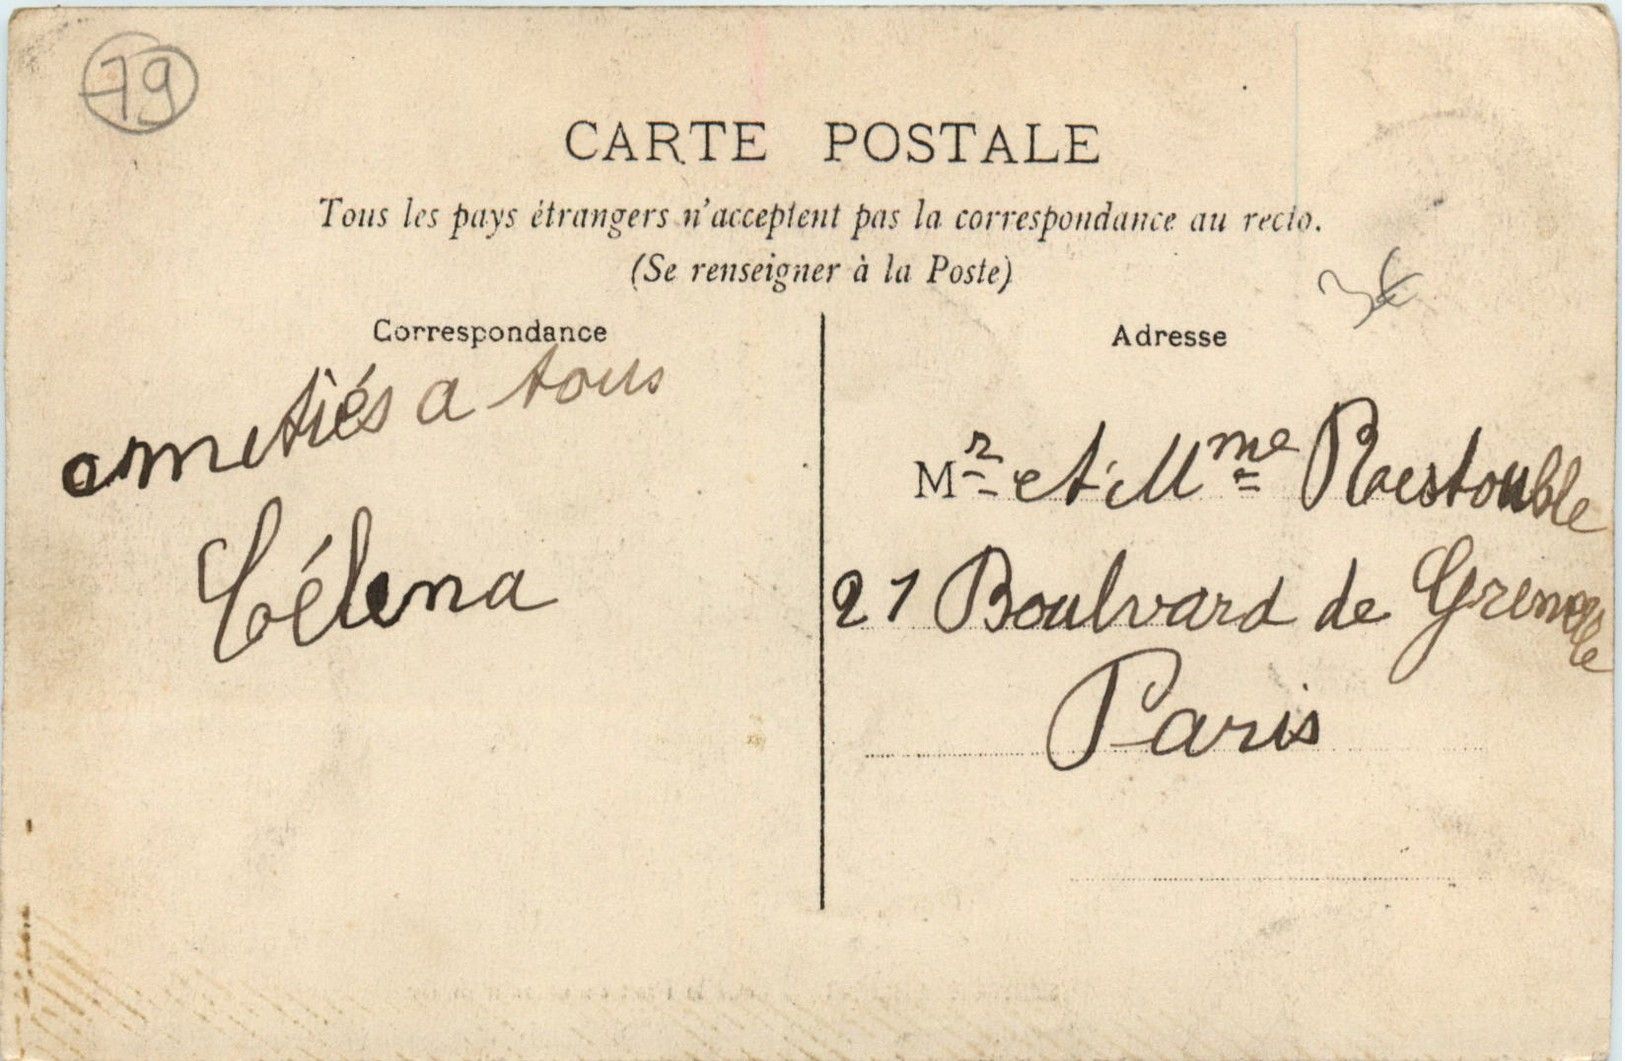 79
CARTE POSTALE
Tous les pays étrangers n'acceptent pas la correspondance au recto.
(Se renseigner à la Poste)
3€
Correspondance
Adresse
ametiés a tous
Célena
Mr et Mme Restouble
21 Boulvard de Grenelle
Paris